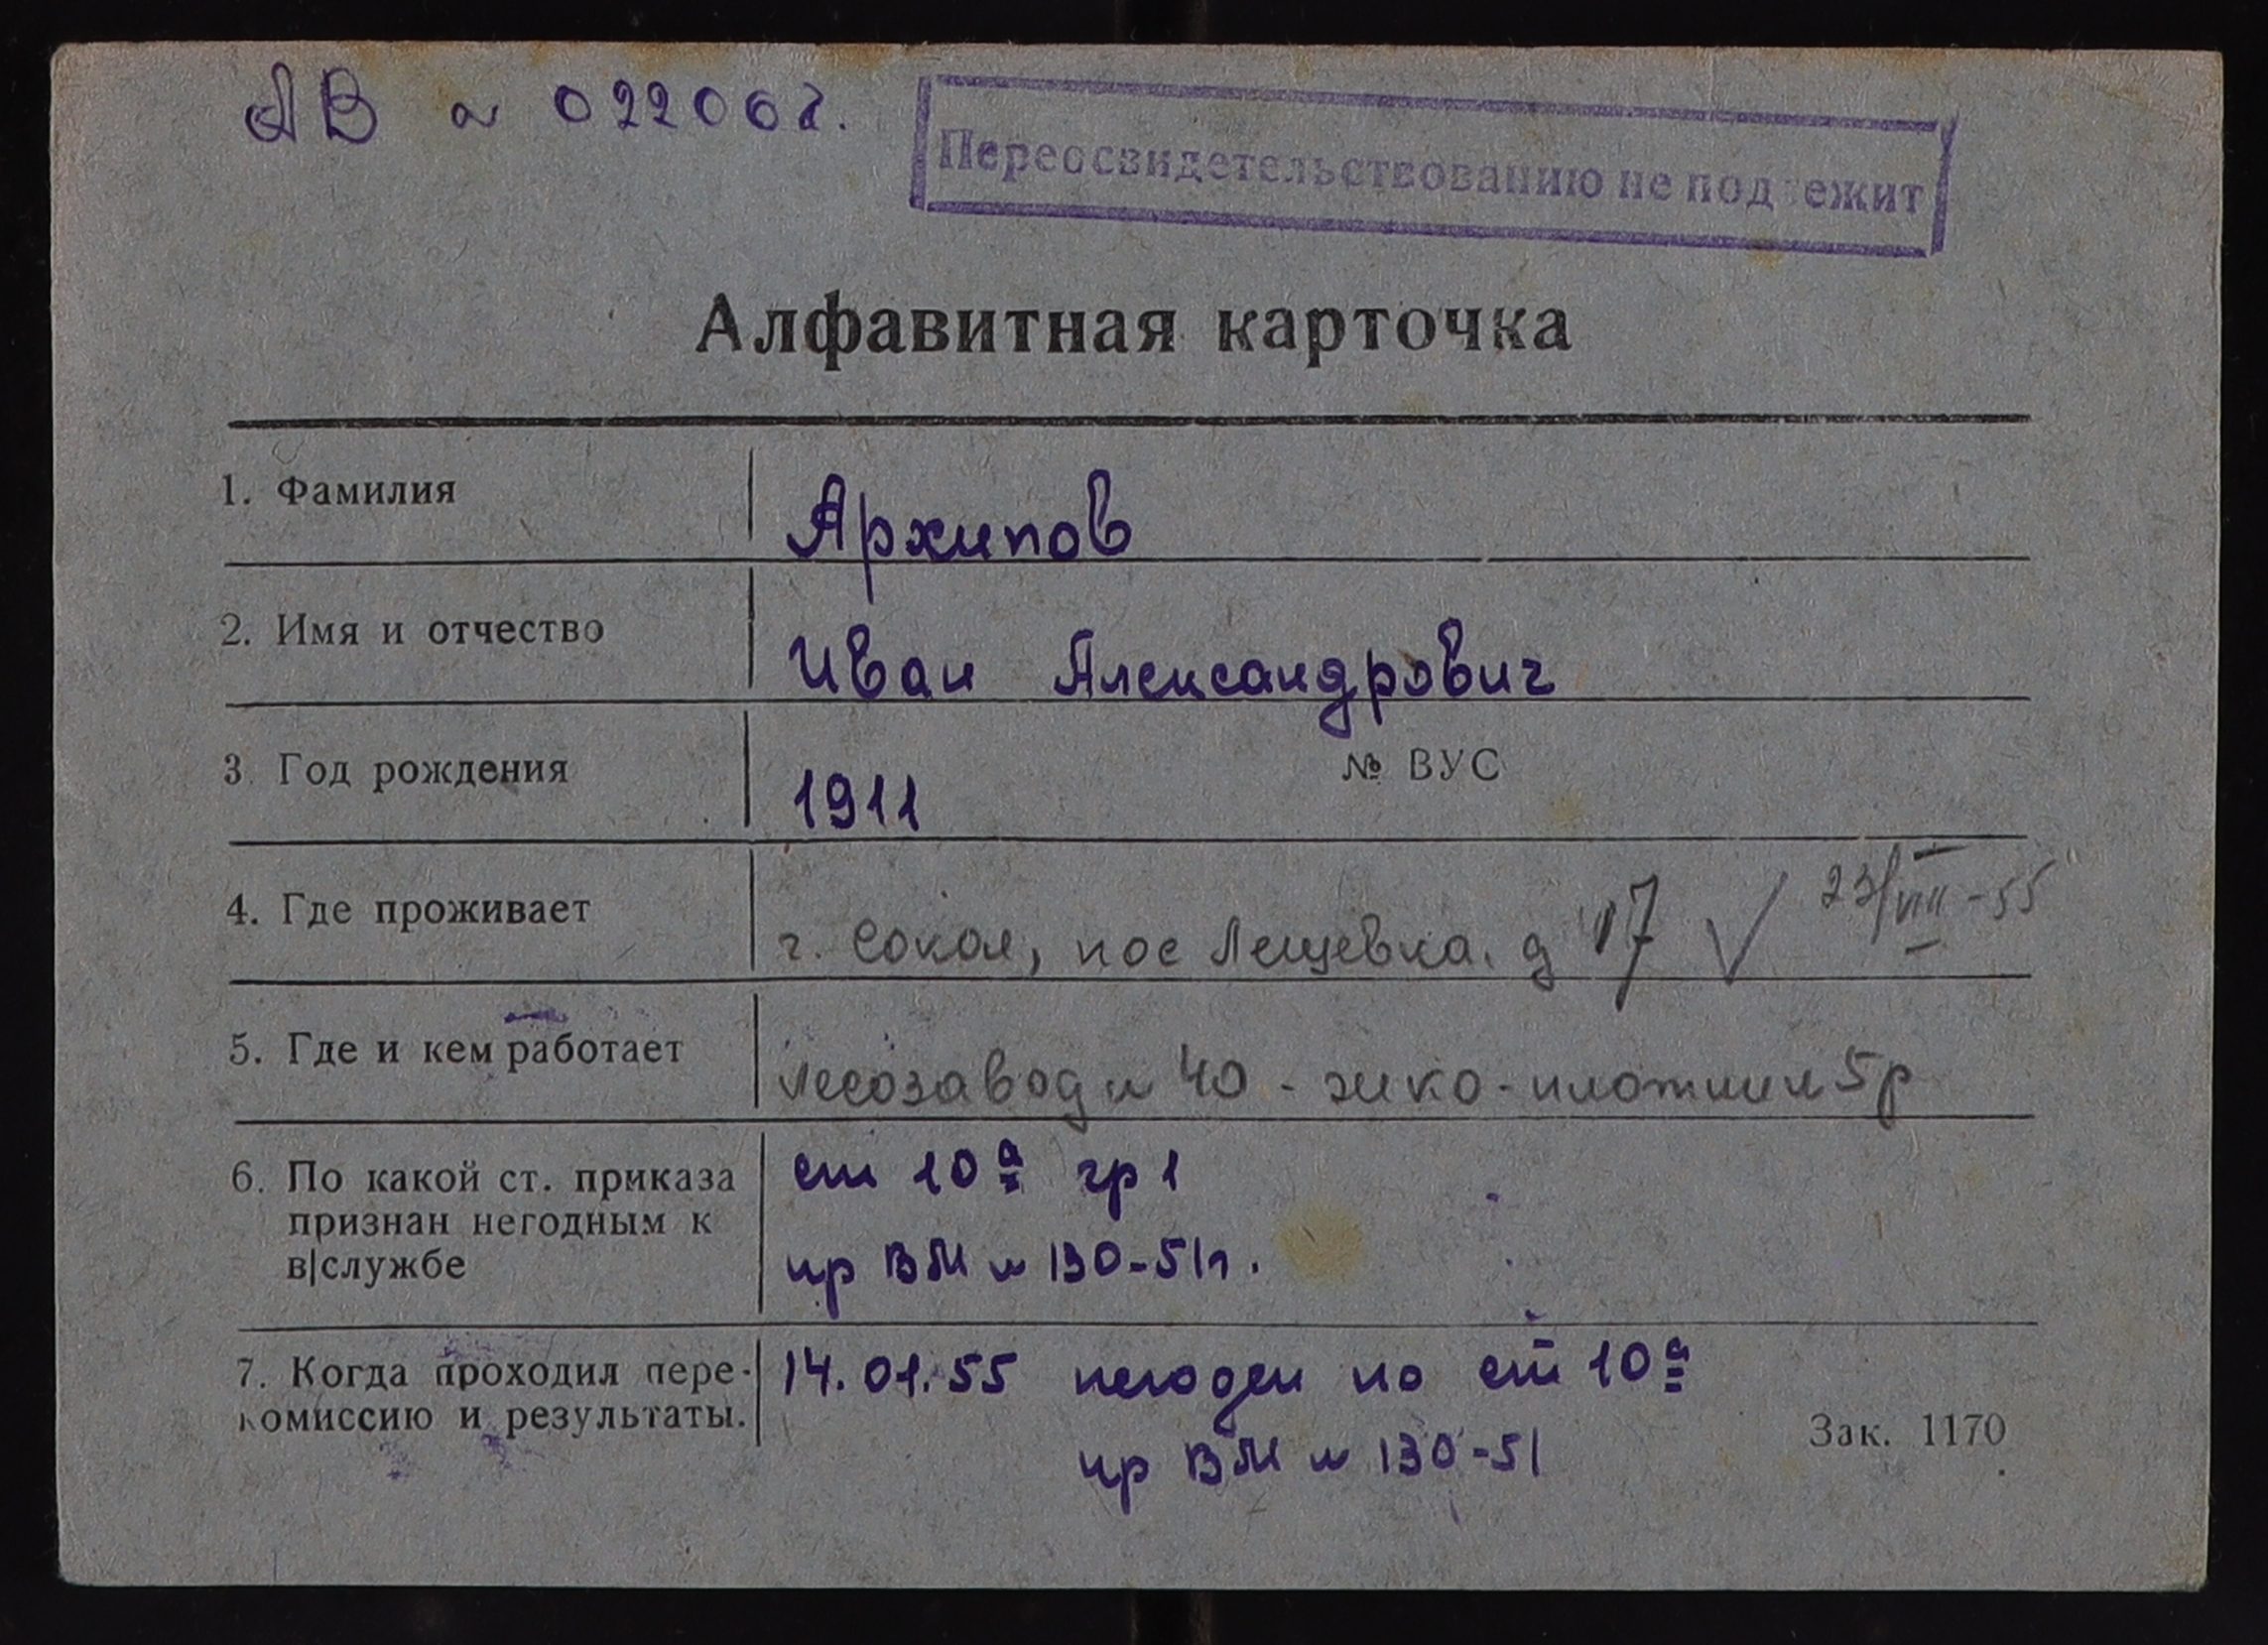 АВ № 022068.
Переосвидетельствованию не подлежит
Алфавитная карточка
1. Фамилия Архипов
2. Имя и отчество Иван Александрович
3. Год рождения 1911 № ВУС
4. Где проживает г. Сокол, пос Лещевка. д 17 √ 23/VIII-55
5. Где и кем работает Лесозавод № 40 - - плотник 5 р
6. По какой ст. приказа ст 10а гр 1
признан негодным к
в|службе пр ВМ № 130-51г.
7. Когда проходил пере- 14.01.55 негоден по ст 10а
комиссию и результаты. пр ВМ № 130-51
Зак. 1170